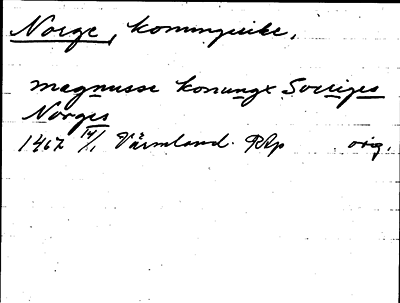 Norge, konungarike.
magnusse konungx Sveriges
Norges
1467 14/1 Värmland. RAp orig.